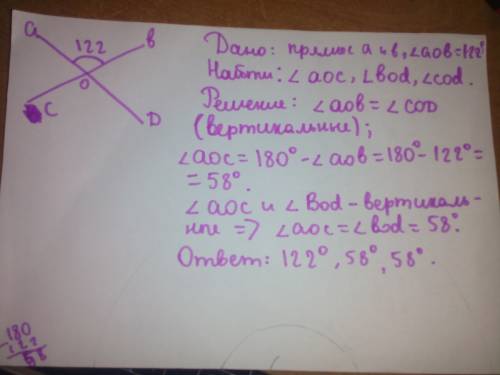 a
122
в
O
C
D
Дано: прямые a и в, ∠aoв=122°
Найти: ∠aoc, ∠вod, ∠cod.
Решение: ∠aoв = ∠COD
(вертикальные);
∠aoc = 180° - ∠aoв = 180° - 122° =
= 58°.
∠aoc и ∠Bod - вертикаль-
ные => ∠aoc = ∠вod = 58°.
Ответ: 122°, 58°, 58°.
180
- 122
58